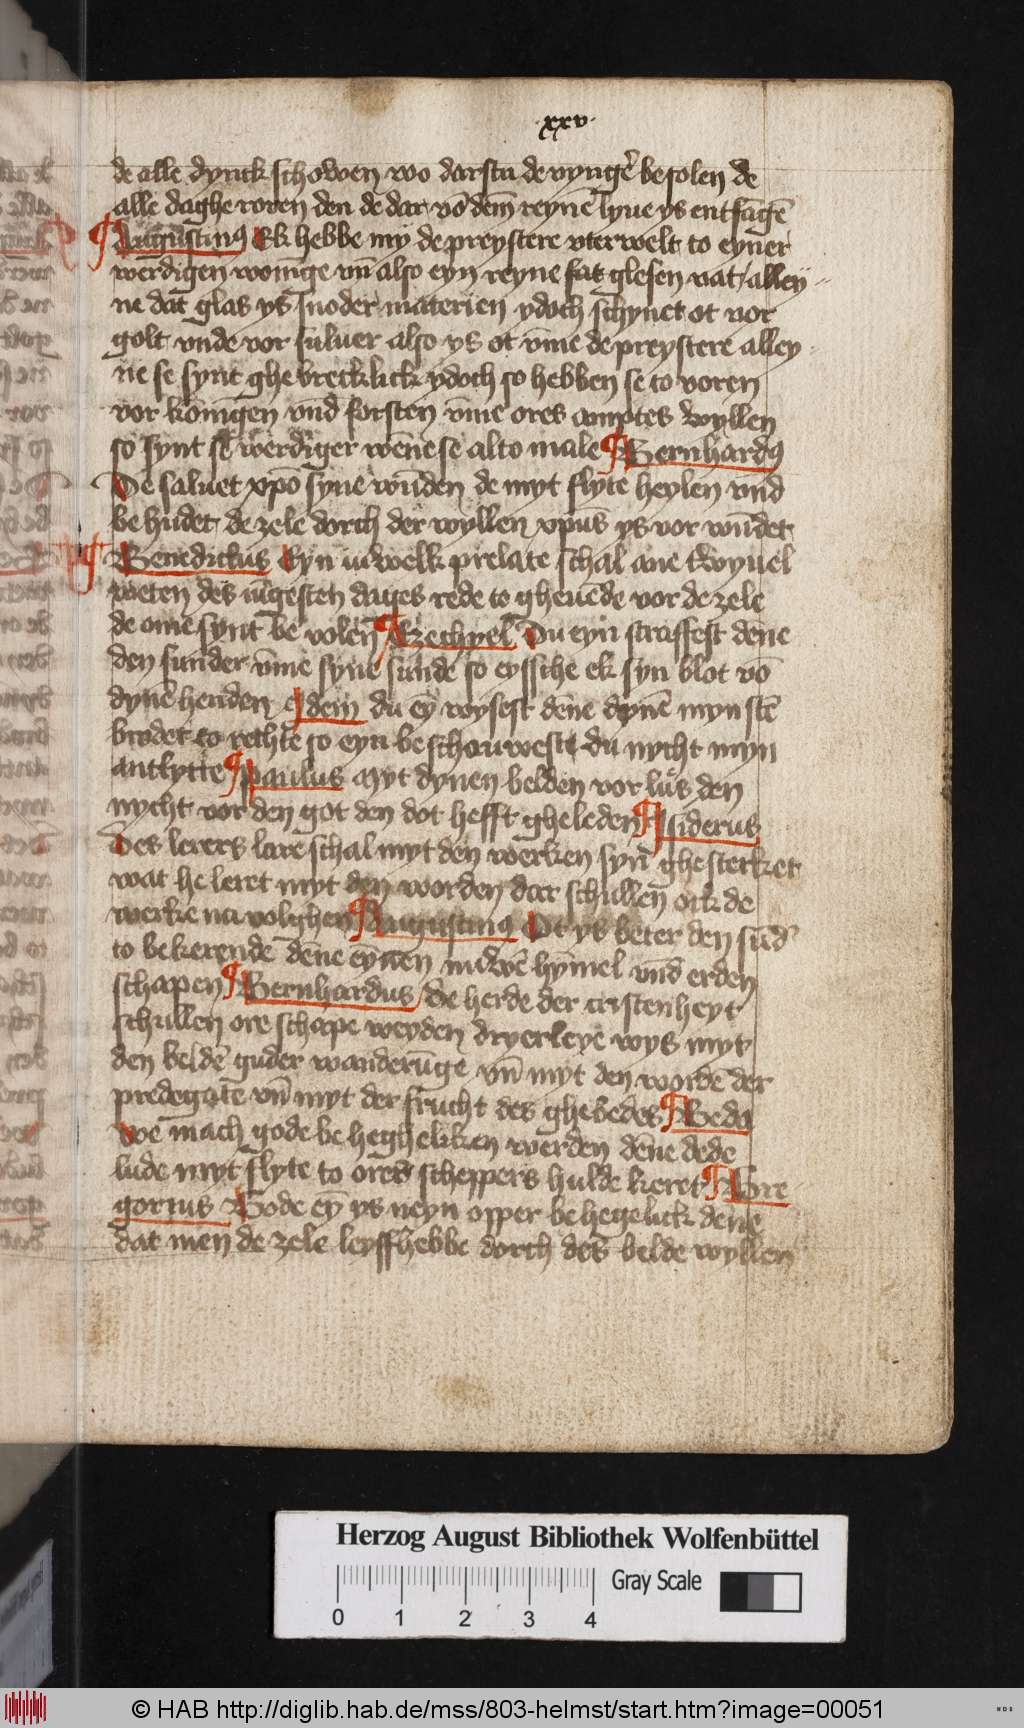 xxv
de alle dynck schowen wo darstu de vynger besolen de
alle daghe roren den de dar vō dem reynē lyue ys entfāgē
Augustinꝯ Ek hebbe my de preystere vterwelt to eyner
werdigen woninge vn̄ also eyn reyne fat glesen vat alley
ne dat glas ys snoder materien ydoch schynet ot vor
golt vnde vor suluer also ys ot vm̄e de preystere alley
ne se synt ghebrecklick ydoch so hebben se to voren
vor konīgen vnd forsten vm̄e ores amptes wyllen
so synt se werdiger wēne se alto male Bernhardꝯ
De saluet xpō syne wūden de myt flyte heylen vnd
behudet de zele dorch der wyllen xpūs ys vor wūdet
Benedictus Eyn iuwelk prelate schal ane twyuel
weten des iūgesten dages rede to gheuēde vor de zele
de ome synt be volen Ezechyel Du eyn straffest dēne
den sunder vm̄e syne sunde so eyssche ek syn blot vō
dynē henden Idem du eȳ wysest dēne dynē mynstē
broder to rechte so eyn beschouwest du nycht myn
antlytte Paulus Myt dynen belden vor lus den
nycht vor den got den dot hefft gheleden Isiderus
Des lerers lare schal myt den werken syn ghesterket
wat he leret myt den worden dar schullen ock de
werke na volghen Augustinꝯ Ot ys beter den sūd
to bekerende dēne eynen nuwē hymel vnd erden
schapen Bernhardus De herde der cristenheyt
schullen ore schape weyden dryerleye wys myt
den beldē guder wanderūge vn̄ myt den wordē der
predegate vn̄ myt der frucht des ghebedes Beda
We mach gode be heghelicken werden dēne dede
lude myt flyte to ores scheppers hulde keret Gre
gorius Gode eȳ ys neyn opper behegelick dene
dat men de zele leyffhebbe dorch des belde wyllen
Herzog August Bibliothek Wolfenbüttel
Gray Scale
0 1 2 3 4
© HAB http://diglib.hab.de/mss/803-helmst/start.htm?image=00051